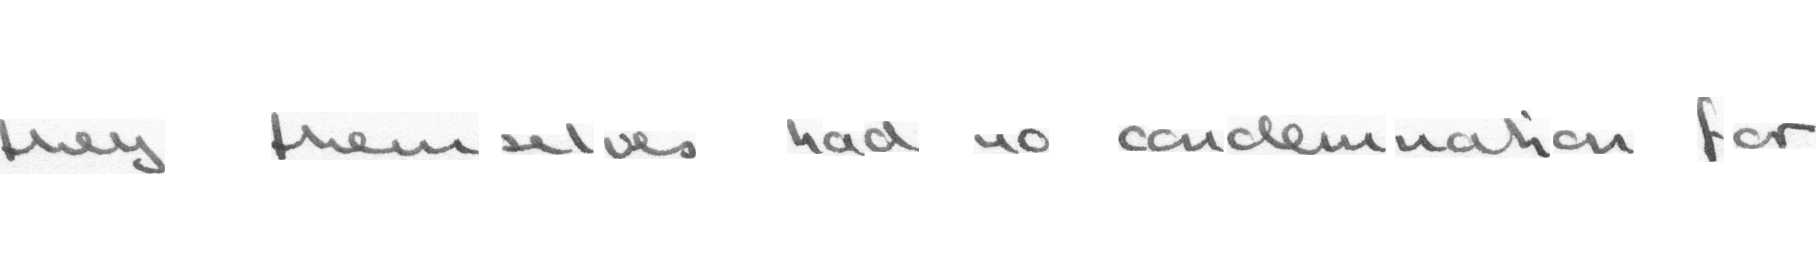 they themselves had no condemnation for